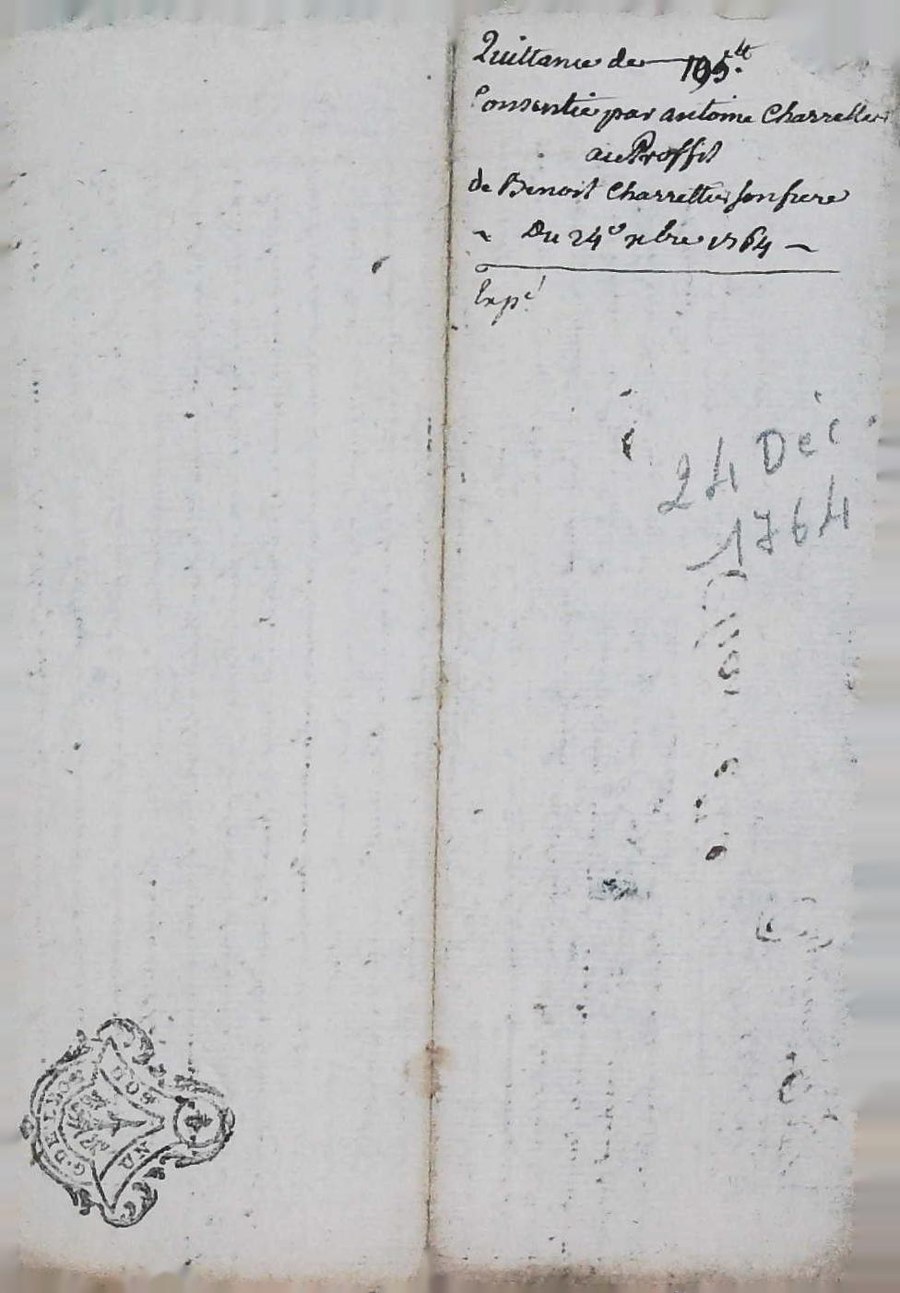 Quittance de 195.tt
Consentie par antoine Charretier
au Proffit
de Benoit Charretier son frere
~ Du 24e xbre 1764 ~
Expé
24 Déc.
1764
G. DE LYON
DOS
UN